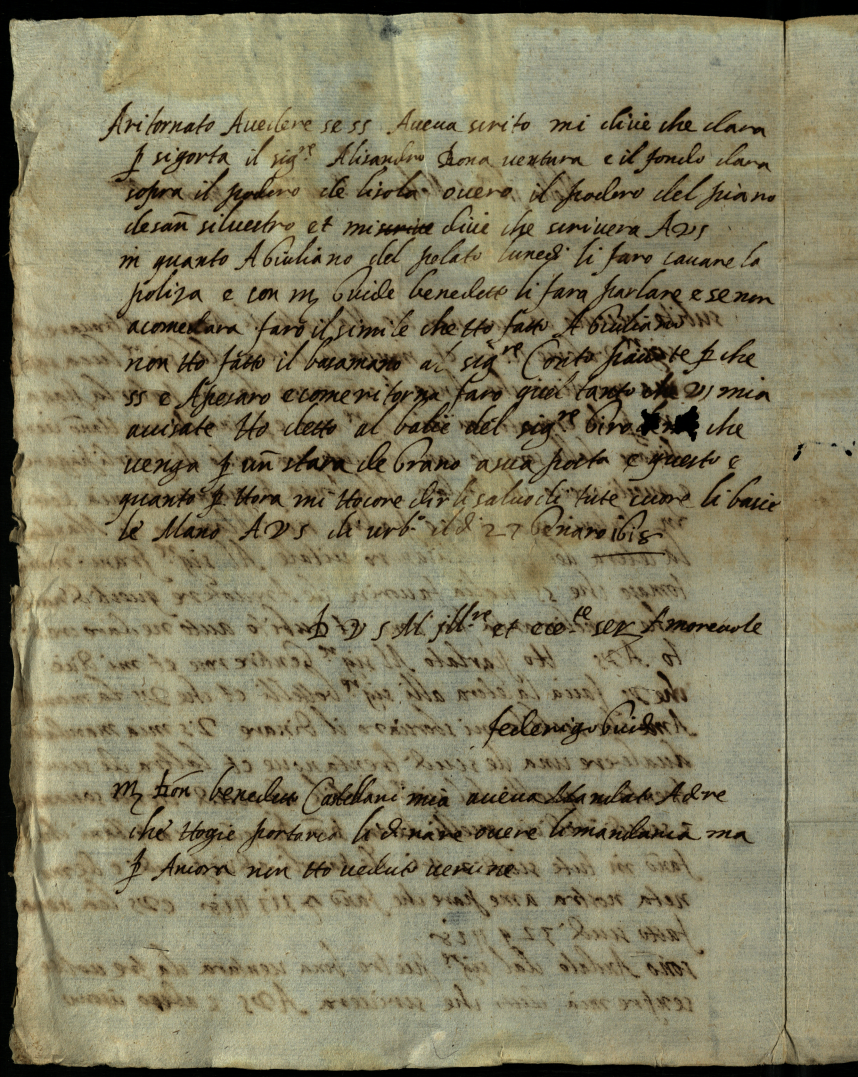 Aritornato Avedere se ss Aveva scrito mi dicie che dara
p sigorta il sig.re Alisandro Bona ventura e il fondo dara
sopra il podero de lisola overo il podero del piano
desan silvestro et mi scrive dicie che scrivera A VS
in quanto A Giuliano del pelato lunedi li faro cavare la
poliza e con m Guide benedeto li fara parlare e se non
acomodara faro il simile che Ho fatto A Giuliano
non Ho fatto il basamano al sig.re Conte p che
ss e Apesaro e come ritorna faro quel tanto che VS mia
avisate Ho detto al balie del sig.re che
venga p un stara de Grano a sua posta e questo e
quanto p Hora mi Hocore dirli salvo di tute cuore li bacie
le Mano A VS di urb.o il di 27 Genaro 1618
D V S M Ill.re et ecc.te ser Amorevole
federigo Guide
m Gon benedeto Castellani mia aveva Mandato A dire
che Hogie portaria li dinare overe li mandaria ma
p Ancora non Ho veduto verune